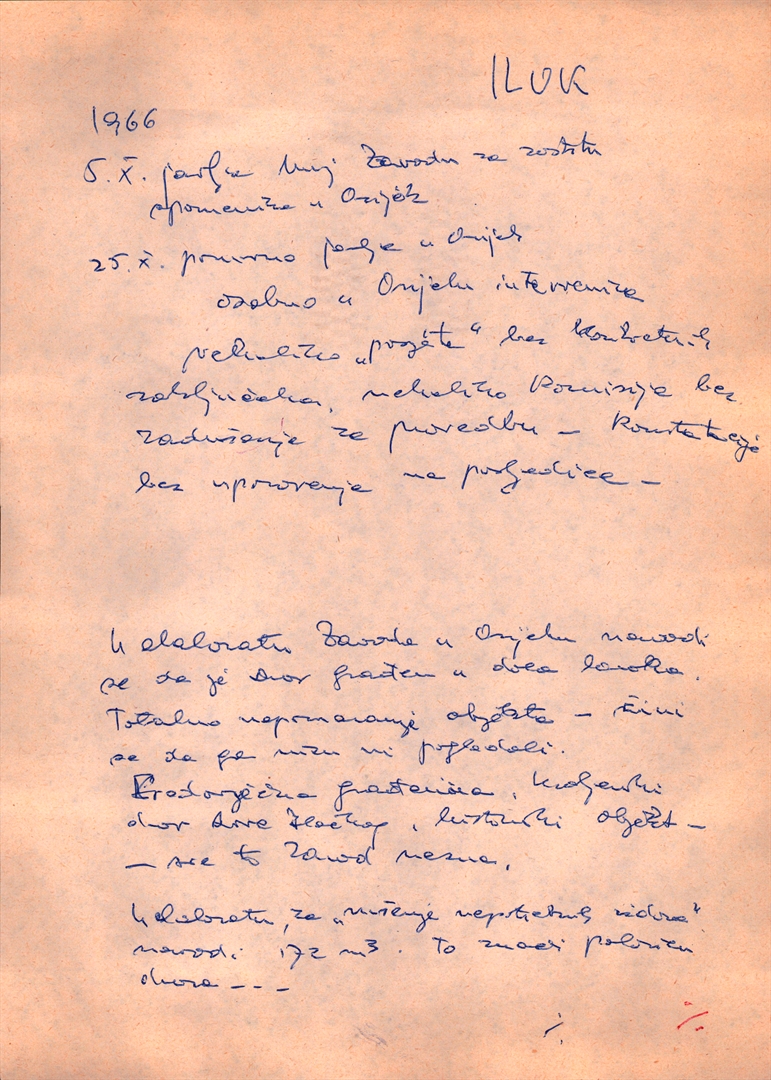 ILOK
1966
5. X. javlja Muzej Zavodu za zaštitu
spomenika u Osijek
25. X. ponovno javlja u Osijek
osobno u Osijeku intervenira
nekoliko „posjeta“ bez konkretnih
zaključaka, nekoliko komisija bez
zaduženja za provedbu – Konstatacije
bez upozorenja na posljedice –
U elaboratu Zavoda u Osijeku navodi
se da je dvor građen u doba baroka.
Totalno nepoznavanje objekta – čini
se da ga nisu ni pogledali.
Srednovječna građevina, kraljevski
dvor Lovre Iločkog, historijski objekt –
– sve to Zavod nezna.
U elaboratu, za „rušenje nepotrebnih zidova“
navodi 172 m3. To znači polovicu
dvora – – –
./.
./.